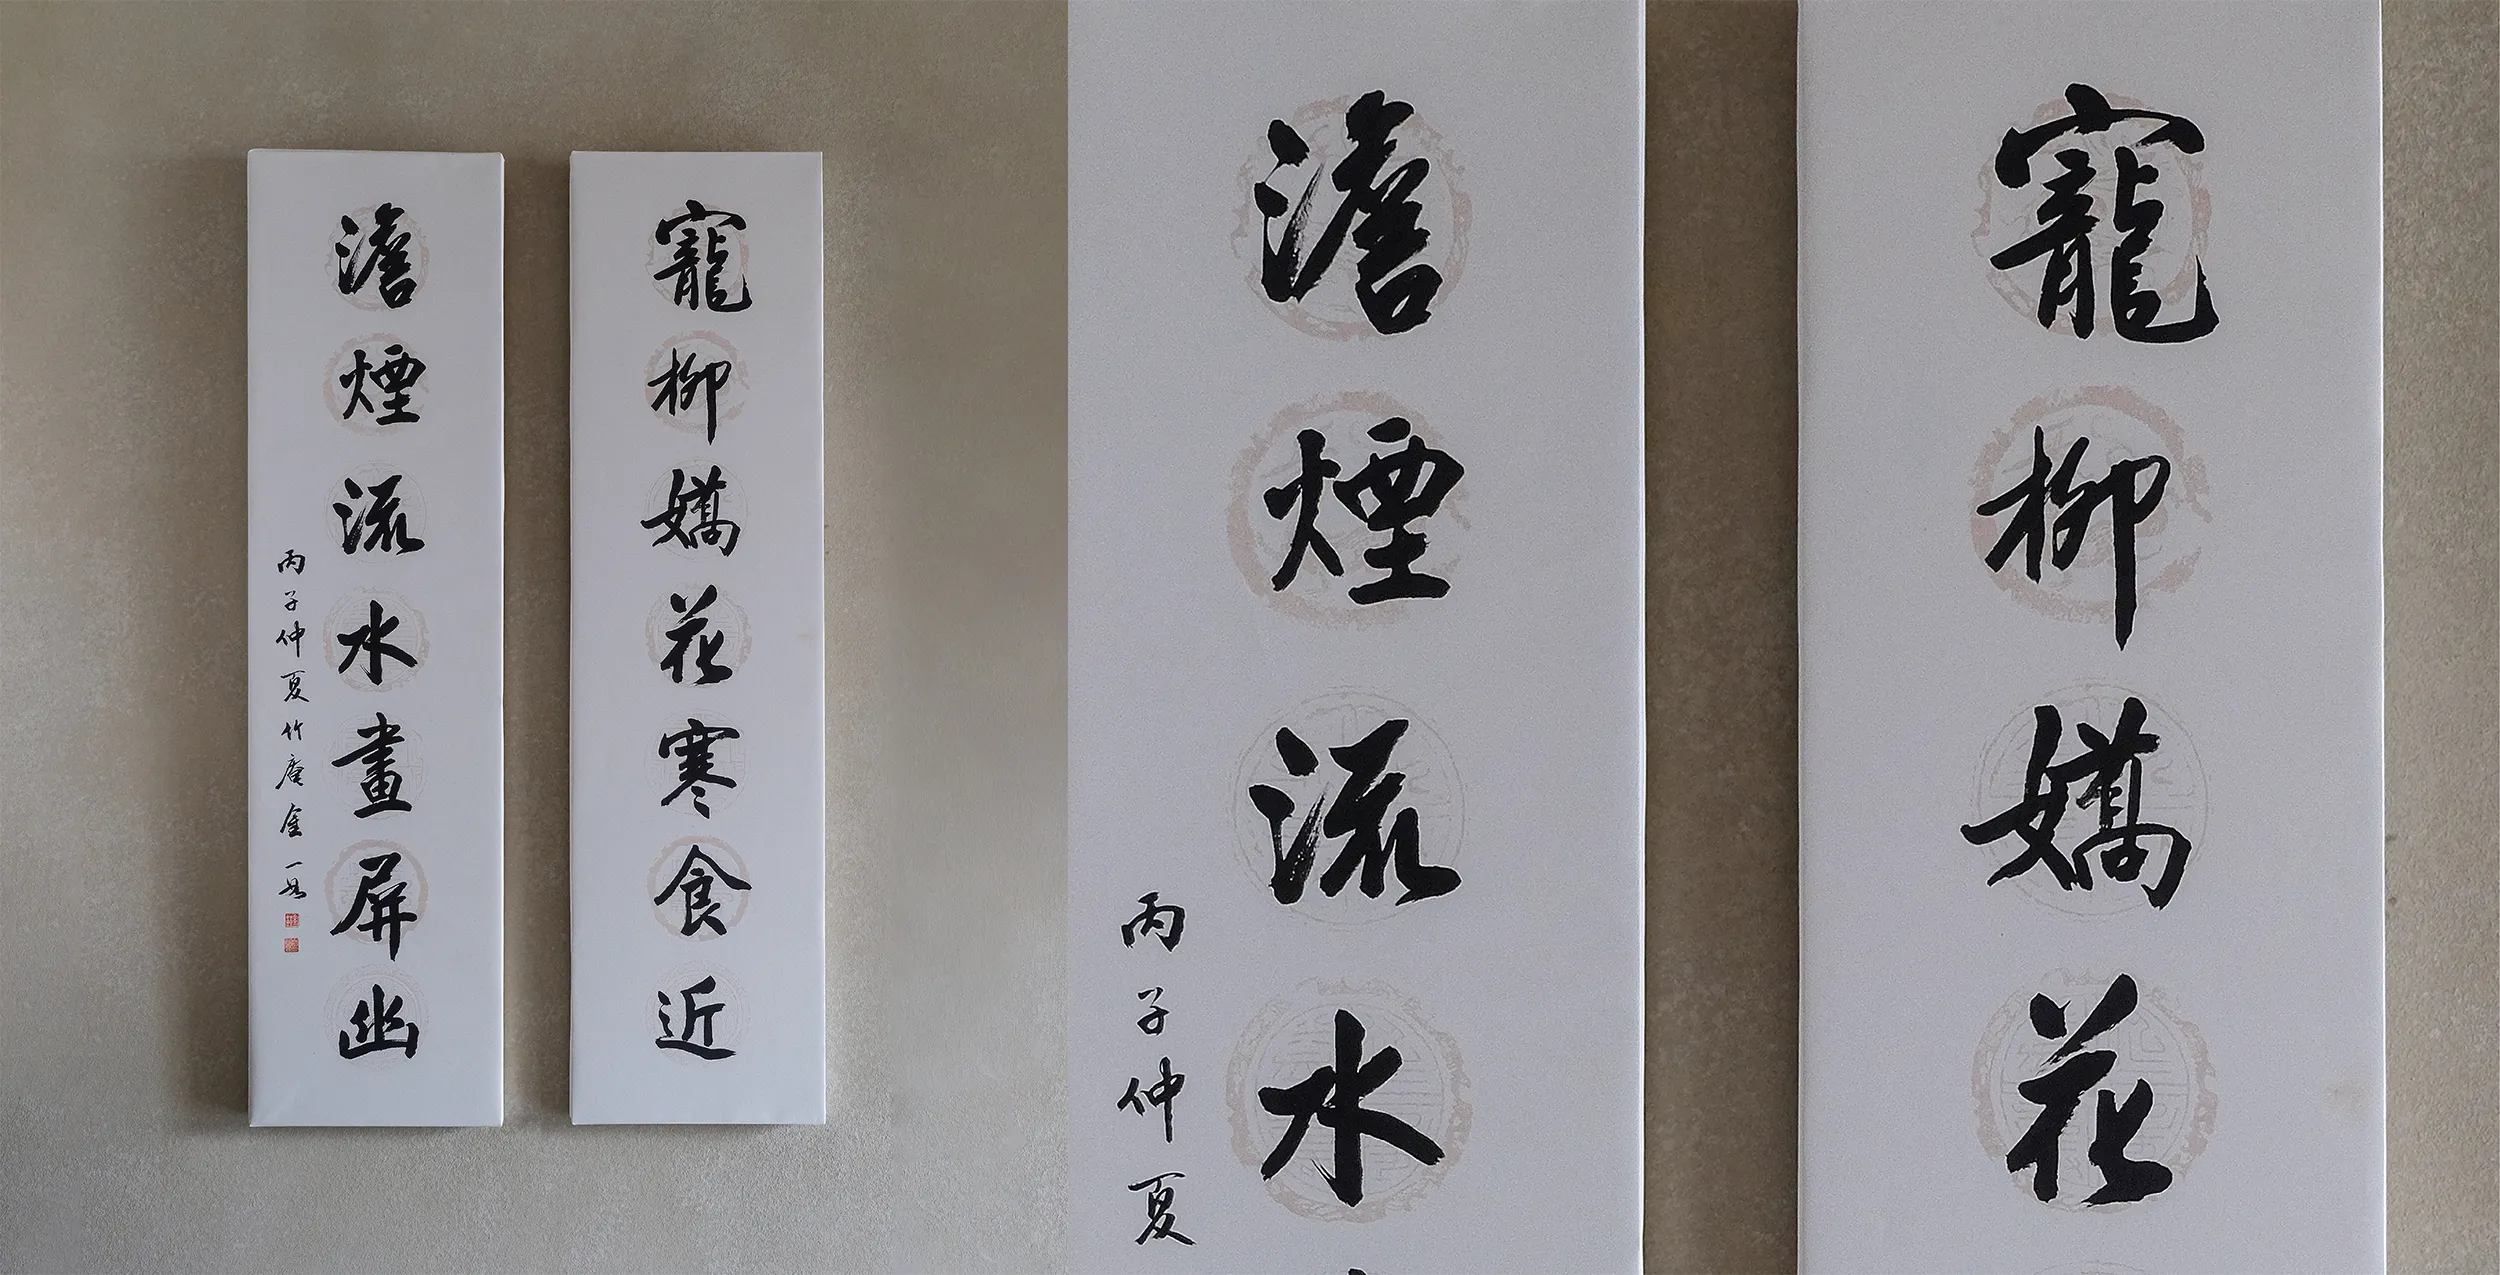 寵柳嬌花寒食近
澹煙流水畫屏幽
丙子仲夏竹庵金一
寵柳嬌花
澹煙流水
丙子仲夏